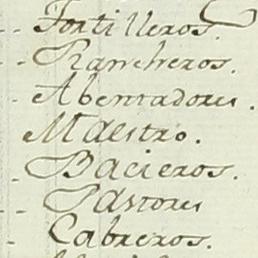 Tortilleros.
Rancheros.
Abentadores.
Maestro.
Bacieros.
Pastores
Cabreros.